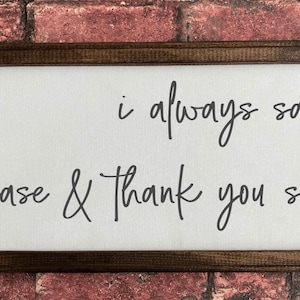 i always sa
ase & thank you s